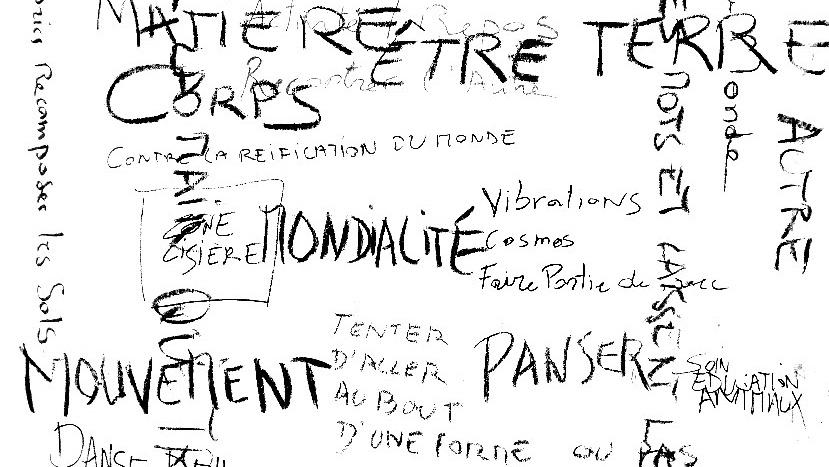 MATIÈRE
ÊTRE TERRE
CORPS
Rencontre l'Autre
Recomposer les Sols
CONTRE LA REIFICATION DU MONDE
monde
AUTRE
MOTS ET LAISSENT
MAIN QUI
LISIÈRE
MONDIALITÉ
Vibrations
Cosmos
Faire Partie de
TENTER
D'ALLER
AU BOUT
D'UNE FORME OU PAS
MOUVEMENT
PANSER
SOIN
ANIMAUX
DANSE